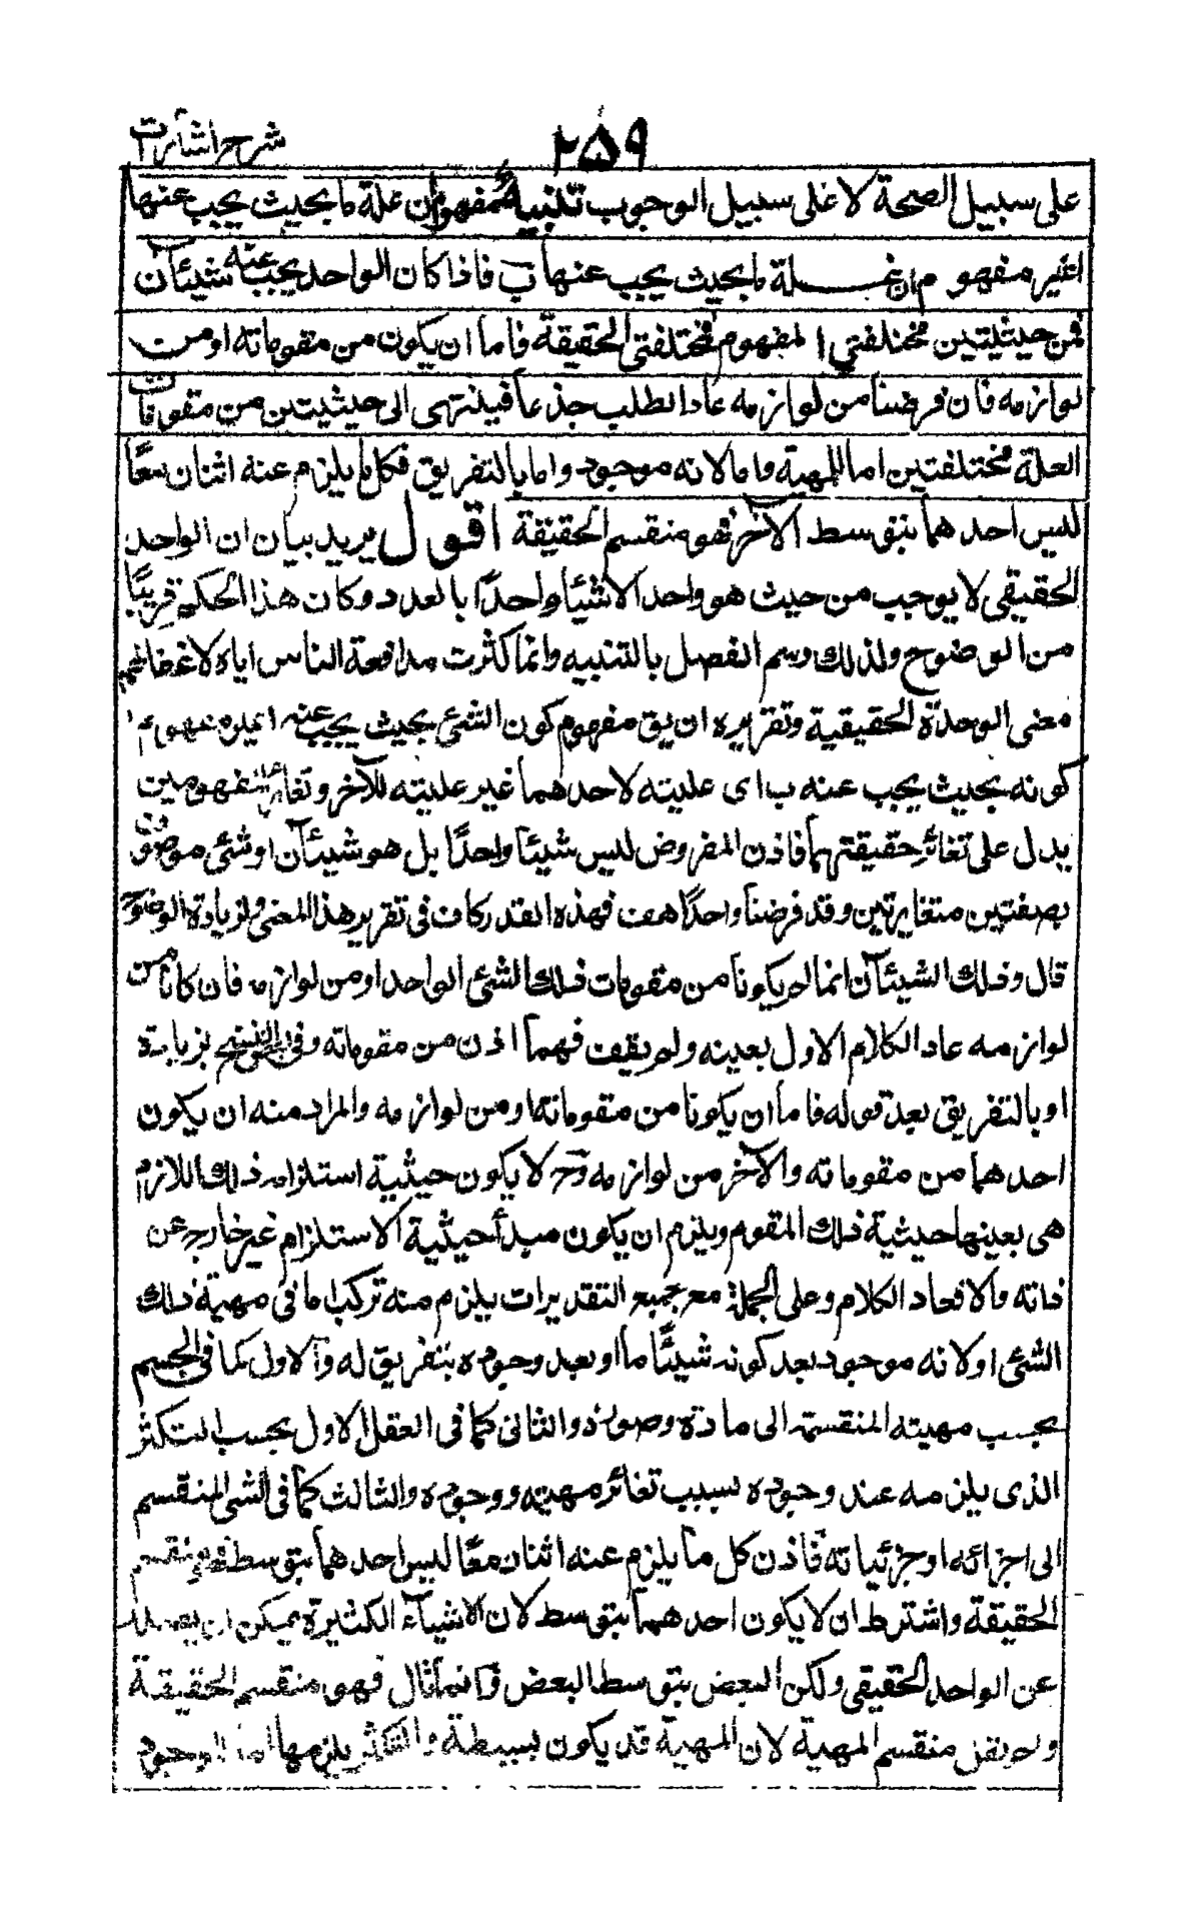 شرح اشارات
۲۵۹
على سبيل الصحة لا على سبيل الوجوب تنبيه مفهوم ان علة ما بحيث يجب عنها ا
غير مفهوم ان علة ما بحيث يجب عنها ب فاذا كان الواحد يجب عنه شيئآن
فمن حيثيتين مختلفتي المفهوم مختلفتى الحقيقة فاما ان يكون من مقوماته او من
لوازمه فان فرضنا من لوازمه عاد الطلب جذعا فينتهى الى حيثيتين من مقومات
العلة مختلفتين اما للمهية واما لانه موجود واما بالتفريق فكل ما يلزم عنه اثنان معًا
ليس احدهما بتوسط الآخر فهو منقسم الحقيقة اقول يريد بيان ان الواحد
الحقيقى لا يوجب من حيث هو واحد الا شيئا واحدًا بالعدد وكان هذا الحكم قريبًا
من الوضوح ولذلك وسم الفصل بالتنبيه وانما كثرت مدافعة الناس اياه لاغفالهم
معنى الوحدة الحقيقية وتقريره ان يق مفهوم كون الشئ بحيث يجب عنه ا غير مفهوم
كونه بحيث يجب عنه ب اى عليته لاحدهما غير عليته للآخر وتغائر المفهومين
يدل على تغائر حقيقتهما فاذن المفروض ليس شيئا واحدًا بل هو شيئآن او شئ موصوف
بصفتين متغايرتين وقد فرضنا واحدًا هف فهذه القدر كاف فى تقرير هذا المعنى ولزيادة الوضوح
قال وذلك الشيئآن انما لم يكونا من مقومات ذلك الشئ الواحد او من لوازمه فان كانا من
لوازمه عاد الكلام الاول بعينه ولم يقف فهما اذن من مقوماته وفى بعض النسخ بزيادة
او بالتفريق بعد قوله فاما ان يكونا من مقوماته او من لوازمه والمراد منه ان يكون
احدهما من مقوماته والآخر من لوازمه وح لا يكون حيثية استلزامه ذلك اللازم
هى بعينها حيثية ذلك المقوم ويلزم ان يكون مبدأ حيثية الاستلزام غير خارج عن
ذاته والا فعاد الكلام وعلى الجملة مع جميع التقديرات يلزم منه تركب اما فى مهية ذلك
الشئ او لانه موجود بعد كونه شيئًا ما او بعد وجوده بتفريق له والاول كما فى الجسم
بحسب مهيته المنقسمة الى مادة وصورة والثانى كما فى العقل الاول بحسب التكثر
الذى يلزمه عند وجوده بسبب تغائر مهيته ووجوده والثالث كما فى الشئ المنقسم
الى اجزائه او جزئياته فاذن كل ما يلزم عنه اثنان معًا ليس احدهما بتوسط فهو منقسم
الحقيقة واشترط ان لا يكون احدهما بتوسط لان الاشيآء الكثيرة يمكن ان يصدر
عن الواحد الحقيقى ولكن البعض بتوسط البعض وانما قال فهو منقسم الحقيقة
ولم يقل منقسم المهية لان المهية قد يكون بسيطة والتكثر يلزمها الوجود